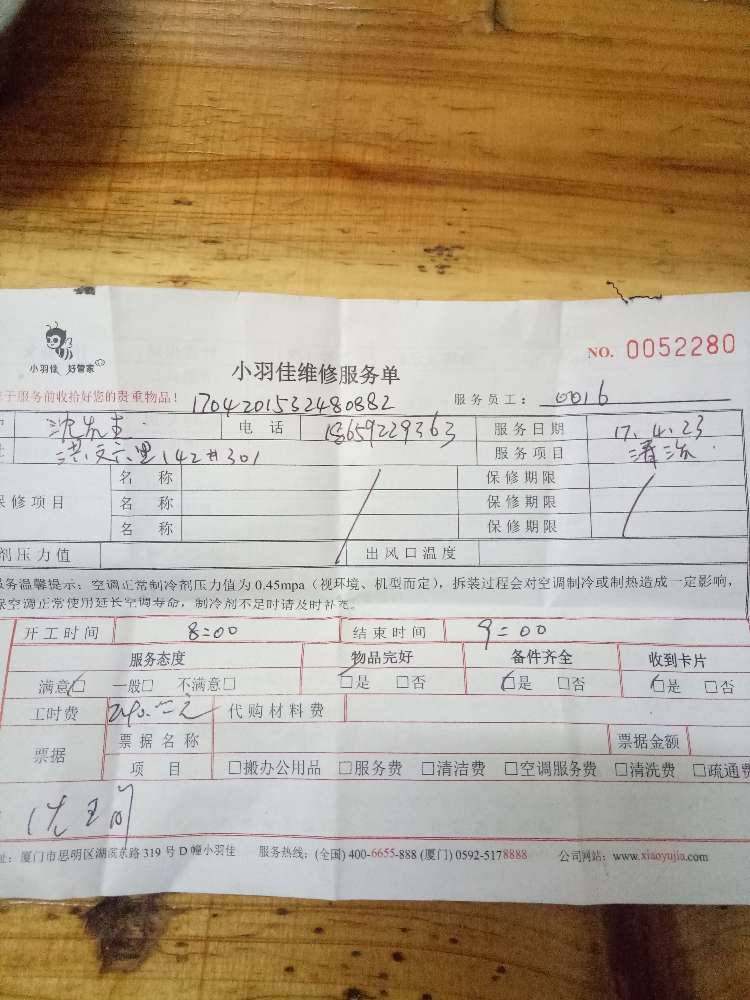 小羽佳 好管家
小羽佳维修服务单
NO. 0052280
于服务前收拾好您的贵重物品!
1704201532480882
服务员工: 0016
电 话 18659229363 服务日期 17.4.23
洪文六里142#301 服务项目 清洗
名 称 保修期限
保修项目 名 称 保修期限
名 称 保修期限
剂压力值 出风口温度
服务温馨提示: 空调正常制冷剂压力值为 0.45mpa (视环境、机型而定), 拆装过程会对空调制冷或制热造成一定影响,
保空调正常使用延长空调寿命, 制冷剂不足时请及时补充。
开工时间 8:00 结束时间 9:00
服务态度 物品完好 备件齐全 收到卡片
满意☑ 一般□ 不满意□ ☑是 □否 ☑是 □否 ☑是 □否
工时费 代购材料费
票据 票据名称 票据金额
项 目 □搬办公用品 □服务费 □清洁费 □空调服务费 □清洗费 □疏通费
址: 厦门市思明区湖滨东路 319 号 D 幢小羽佳 服务热线: (全国) 400-6655-888 (厦门) 0592-5178888 公司网站: www.xiaoyujia.com